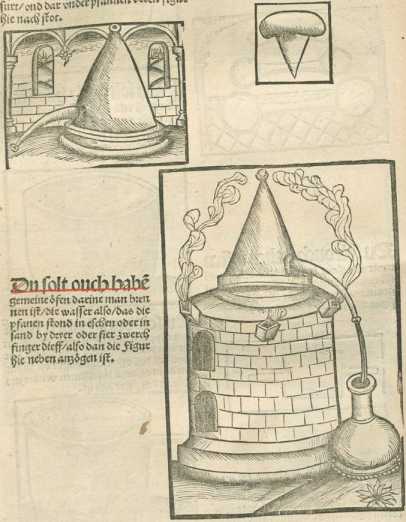 furt/ond dar vnder pfannen deren figur
hie nach stot.
Du solt ouch habē
gemeine öfen darine man bren
nen ist/die wasser also/das die
pfanen stond in eschen oder in
sand by dryer oder fier zwerch
finger dieff/also dan die Figur
hie neben anzögen ist.